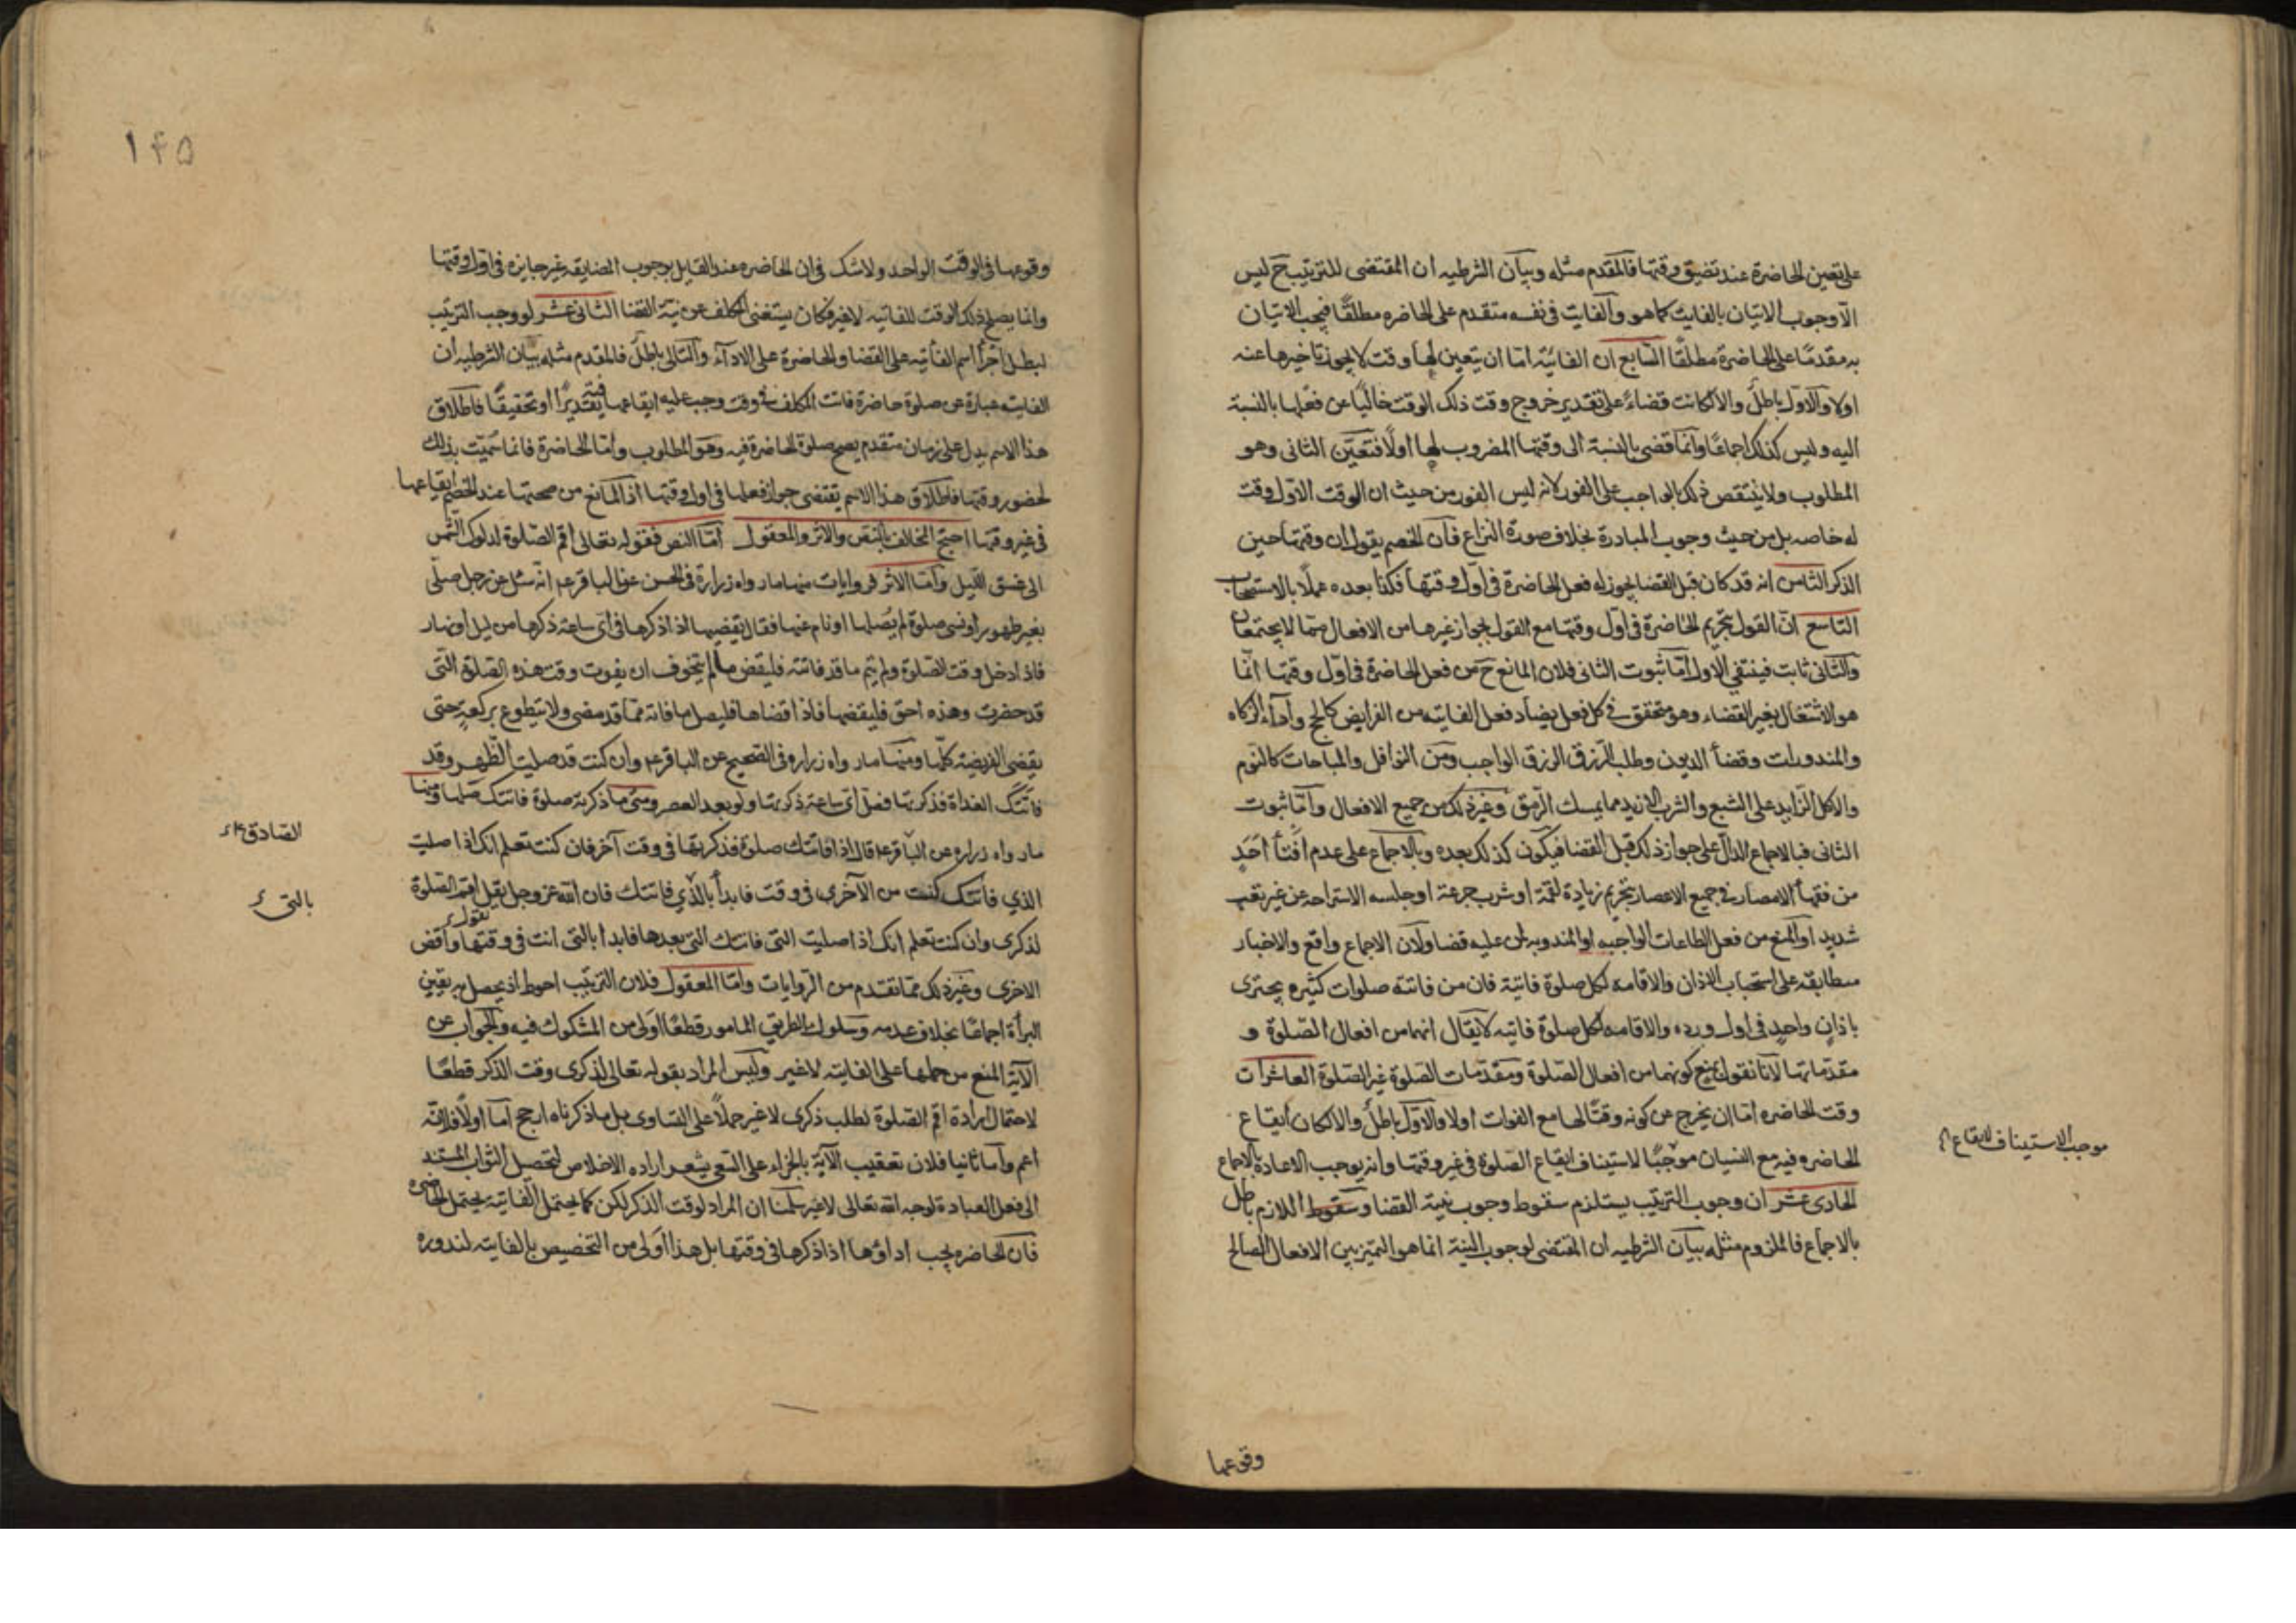 على تعين الحاضرة عند تضيق وقتها فالمقدم مثله وبيان الشرطيه ان المقتضى للترتيب ح ليس
الا وجوب الاتيان بالفايت كما هو والفايت فى نفسه متقدم على الحاضره مطلقا فيجب الاتيان
به مقدما على الحاضرة مطلقا السابع ان الفائتة اما ان يتعين لها وقت لا يجوز تاخيرها عنه
اولا والاول باطل والا لكانت قضاء على تقدير خروج وقت ذلك الوقت خاليا عن فعلها بالنسبة
اليه وليس كذلك اجماعا وانما قضى بالنسبة الى وقتها المضروب لها اولا فتعين الثانى وهو
المطلوب ولا ينتقض ذلك بالواجب على الفور لانه ليس الفور من حيث ان الوقت الاول وقت
له خاصه بل من حيث وجوب المبادرة بخلاف صورة النزاع فان الخصم يقول ان وقتها حين
الذكر الثامن انه قد كان قبل القضا يجوز له فعل الحاضرة فى اول وقتها فكذا بعده عملا بالاستصحاب
التاسع ان القول بتحريم الحاضرة فى اول وقتها مع القول بجواز غيرها من الافعال مما لا يجتمعان
والثانى ثابت فينتفى الاول اما ثبوت الثانى فلان المانع ح من فعل الحاضرة فى اول وقتها انما
هو الاشتغال بغير القضاء وهو متحقق فى كل فعل يضاد فعل الفايته من الفرايض كالحج واداء الزكاه
والمندورات وقضا الديون وطلب الرزق الرزق الواجب ومن النوافل والمباحات كالنوم
والاكل الزايد على الشبع والشرب الازيد مما يمسك الرمق وغير ذلك من جميع الافعال واما ثبوت
الثانى فبالاجماع الدال على جواز ذلك قبل القضا فيكون كذلك بعده وبالاجماع على عدم افتا احد
من فقها الامصار فى جميع الاعصار بتحريم زيادة لقمة او شرب جرعة او جلسه الاستراحه عن غير تعب
شديد او المنع من فعل الطاعات الواجبه او المندوبه لمن عليه قضا ولان الاجماع واقع والاخبار
متطابقه على استحباب الاذان والاقامه لكل صلوة فايتة فان من فاتته صلوات كثيره يجتزى
باذان واحد فى اول ورده والاقامه لكل صلوة فايته لا يقال انهما من افعال الصلوة و
مقدماتها لانا نقول نمنع كونهما من افعال الصلوة ومقدمات الصلوة غير الصلوة العاشر ان
وقت الحاضره اما ان يخرج عن كونه وقتا لها مع الفوات اولا والاول باطل والا لكان ايقاع
الحاضره فيه مع النسيان موجبا لاستيناف ايقاع الصلوة فى غير وقتها وانه يوجب الاعادة بالاجماع
الحادى عشر ان وجوب الترتيب يستلزم سقوط وجوب نية القضا وسقوط اللازم باطل
بالاجماع فالملزوم مثله بيان الشرطيه ان المقتضى لوجوب النية انما هو التميز بين الافعال الصالح
موجب الاستيناف لايقاع
وقوعها
١۴۵
وقوعها فى الوقت الواحد ولا شك فى ان الحاضره عند القايل بوجوب المضايقه غير جايزه فى اول وقتها
وانما يصلح ذلك الوقت للفاتيه لا غير فكان يستغنى المكلف عن نية القضا الثانى عشر لو وجب الترتيب
لبطل اجرا اسم الفائتيه على القضا والحاضرة على الاداء والتالى باطل فالمقدم مثله بيان الشرطيه ان
الفايته عبارة عن صلوة حاضرة فاتت المكلف فى وقت وجب عليه ايقاعها فيه تقديرا او تحقيقا فاطلاق
هذا الاسم يدل على زمان متقدم يصح صلوة الحاضرة فيه وهو المطلوب واما الحاضرة فانما سميت بذلك
لحضور وقتها فاطلاق هذا الاسم يقتضى جواز فعلها فى اول وقتها اذ المانع من صحتها عند الخصم ايقاعها
فى غير وقتها احتج المخالف بالنص والاثر والمعقول اما النص فقوله تعالى اقم الصلوة لدلوك الشمس
الى غسق الليل واما الاثر فروايات منها ما رواه زرارة فى الحسن عن الباقر ع انه سئل عن رجل صلى
بغير طهور او نسى صلوة لم يصلها او نام عنها فقال يقضيها اذا ذكرها فى اى ساعة ذكرها من ليل او نهار
فاذا دخل وقت الصلوة ولم يتم ما قد فاتته فليقض ما لم يتخوف ان يفوت وقت هذه الصلوة التى
قد حضرت وهذه احق فليقضها فاذا قضاها فليصل ما فاته مما قد مضى ولا يتطوع بركعة حتى
يقضى الفريضة كلها ومنها ما رواه زراره فى الصحيح عن الباقر ع وان كنت قد صليت الظهر وقد
فاتتك الغداة فذكرتها فصل اى ساعة ذكرتها ولو بعد العصر ومتى ما ذكرته صلوة فاتتك صلها ومنها
ما رواه زراره عن الباقر ع قال اذا فاتتك صلوة فذكرتها فى وقت آخر فان كنت تعلم انك اذا صليت
الذي فاتتك كنت من الآخرى فى وقت فابدأ بالذي فاتتك فان الله عز وجل يقل اقم الصلوة
يقول
لذكرى وان كنت تعلم انك اذا صليت التى فاتتك التى بعدها فابدا بالتى انت فى وقتها واقض
الاخرى وغير ذلك مما تقدم من الروايات واما المعقول فلان الترتيب احوط اذ يحصل به يقين
البرأة اجماعا بخلاف عدمه وسلوك الطريق المامور قطعا اولى من المشكوك فيه والجواب عن
الآية المنع من حملها على الفايته لا غير وليس المراد بقوله تعالى لذكرى وقت الذكر قطعا
لاحتمال ارادة اقم الصلوة لطلب ذكرى لا غير حملا على التساوى بل ما ذكرناه ارجح اما اولا فلانه
اعم واما ثانيا فلان تعقيب الآية بالجزاء على السعى يشعر اراده الاخلاص لتحصل الثواب المستند
الى فعل العبادة لوجه الله تعالى لا غير سلمنا ان المراد لوقت الذكر لكن كما يحتمل الفائتيه يحتمل الحاضره
فان الحاضره يجب اداؤها اذا ذكرها فى وقتها بل هذا اولى من التخصيص بالفايته لندوره
الصادق ع
بالتى